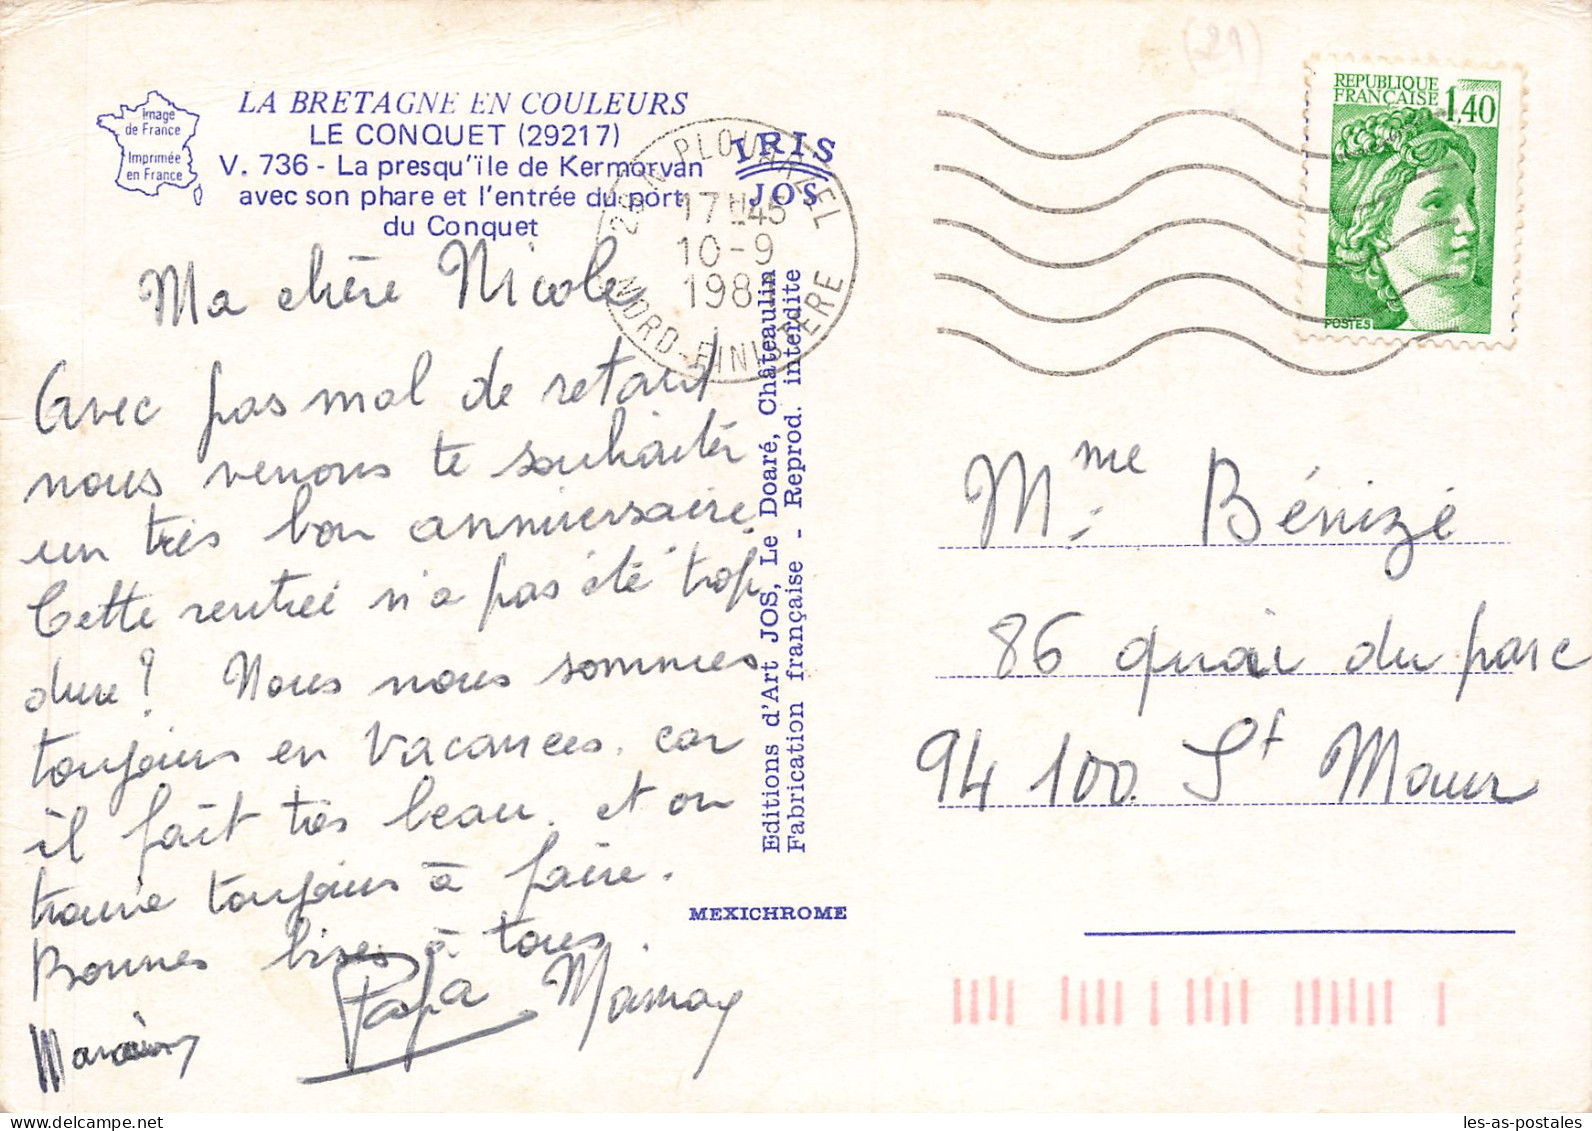 (29)
Image
de France
Imprimée
en France
LA BRETAGNE EN COULEURS
LE CONQUET (29217)
V. 736 - La presqu'ïle de Kermorvan
avec son phare et l'entrée du port
du Conquet
IRIS
JOS
29 N PLOUARZEL
17H45
10-9
198
NORD-FINISTERE
REPUBLIQUE
FRANÇAISE 1,40
POSTES
Ma chère Nicole
Avec pas mal de retard
nous venons te souhaiter
un très bon anniversaire.
Cette rentrée n'a pas été trop
dure? Nous nous sommes
toujours en vacances. car
il fait très beau. et on
trouve toujours à faire.
Bonnes bises à tous
Papa Mamay
Editions d'Art JOS, Le Doaré, Châteaulin
Fabrication française - Reprod. interdite
MEXICHROME
Mme Bénizé
86 quai du parc
94 100. St Maur
les-as-postales